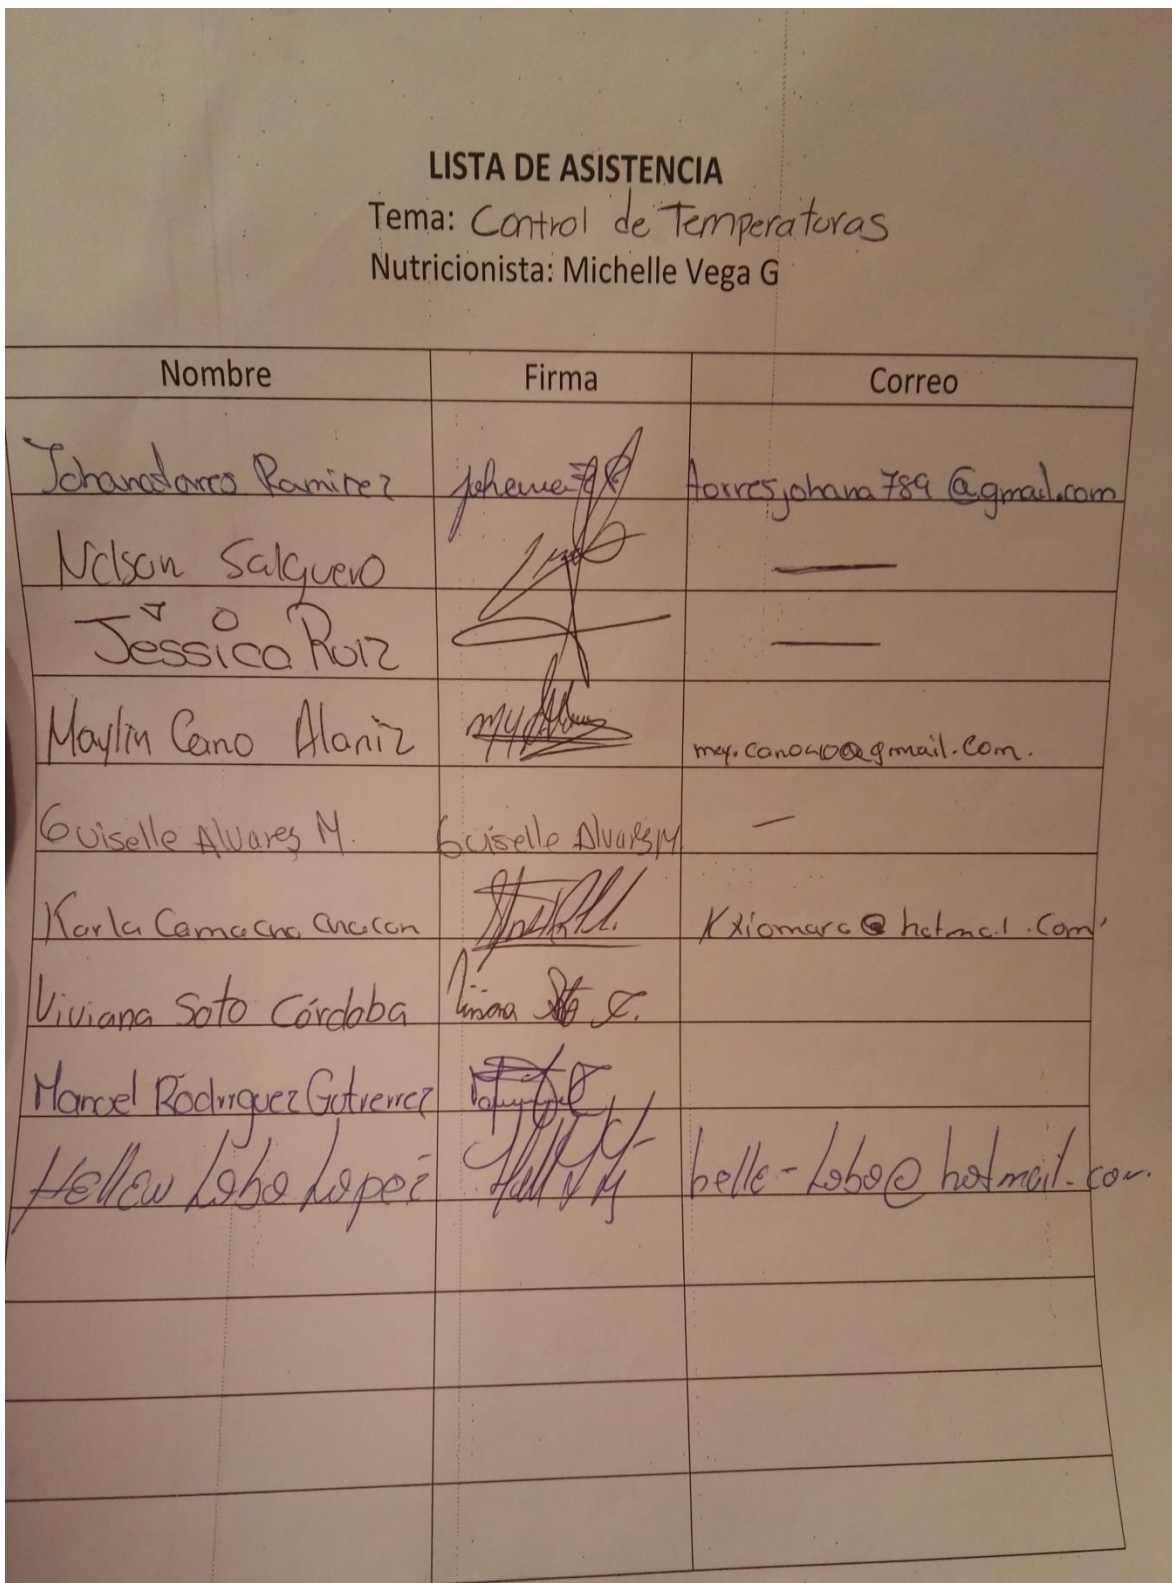 LISTA DE ASISTENCIA
Tema: Control de Temperaturas
Nutricionista: Michelle Vega G
Nombre Firma Correo
Ramirez torresjohana789@gmail.com
Nelson Salguero
Jessica Ruiz
Maylin Cano Alaniz
Guiselle Alvares M. Guiselle Alvares M
Karla Camacho Chacon Kxiomara@hotmail.com
Viviana Soto Córdoba
Manuel Rodriguez Gutierrez
Hellen Lobo Lopez belle-Lobo@hotmail.com